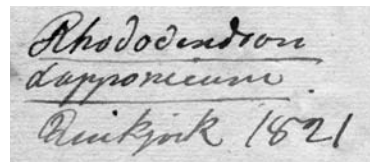 Rhododendron
Lapponicum.
Reikjork 1821